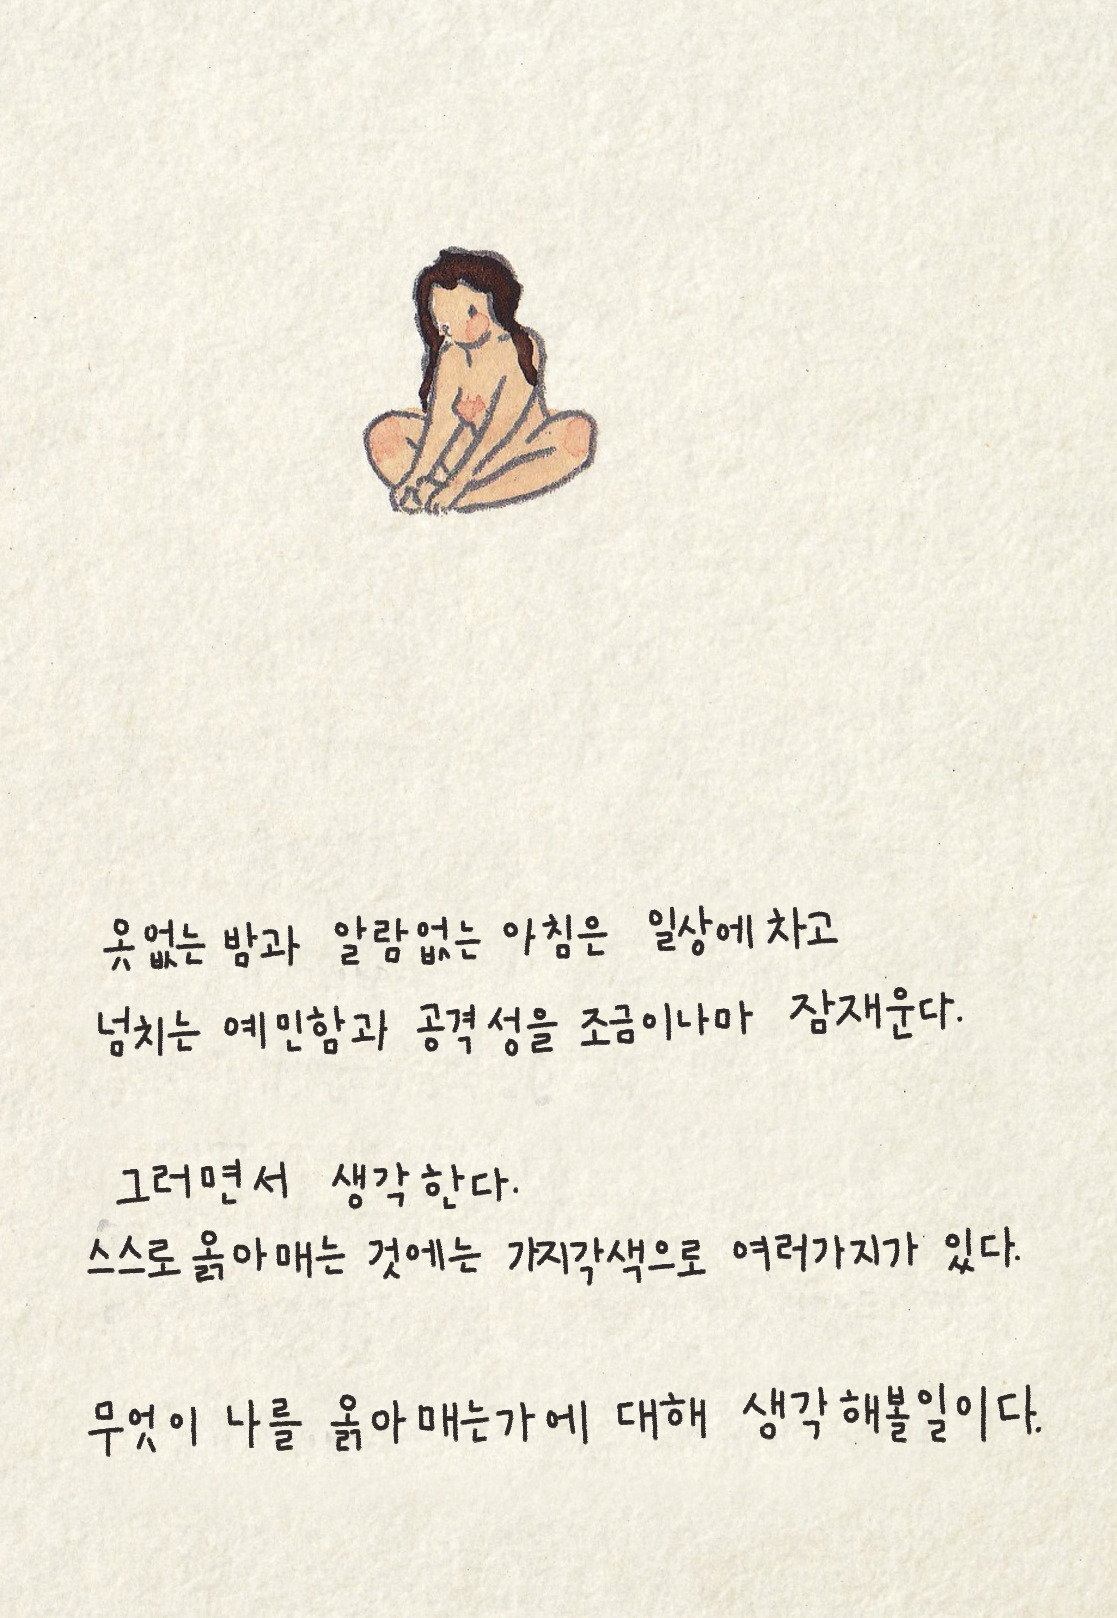 옷없는 밤과 알람없는 아침은 일상에 차고
넘치는 예민함과 공격성을 조금이나마 잠재운다.
그러면서 생각한다.
스스로 옭아매는 것에는 가지각색으로 여러가지가 있다.
무엇이 나를 옭아매는가에 대해 생각해볼일이다.